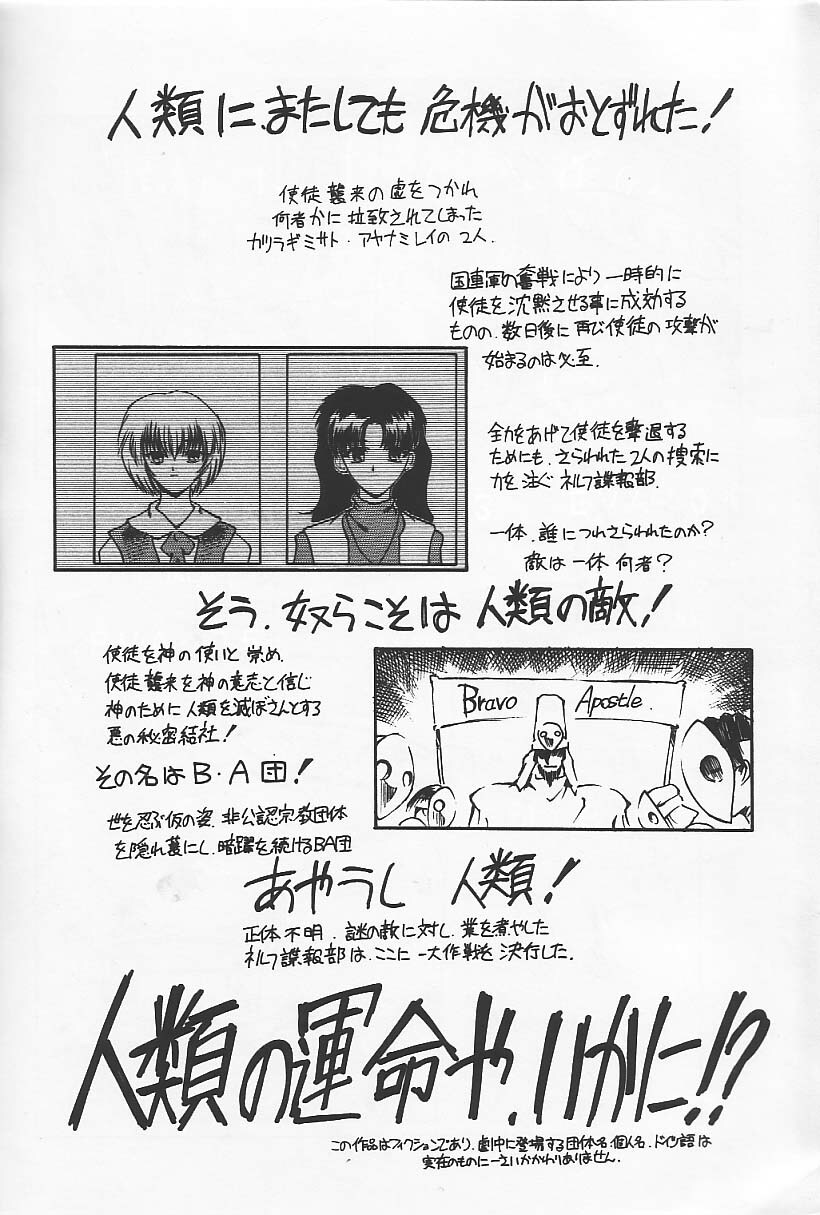 人類に、またしても危機がおとずれた!
使徒襲来の虚をつかれ
何者かに拉致されてしまった
カツラギミサト・アヤナミレイの2人.
国連軍の奮戦により一時的に
使徒を沈黙させる事に成功する
ものの、数日後に再び使徒の攻撃が
始まるのは必至.
全力をあげて使徒を撃退する
ためにも、さらわれた2人の捜索に
力を注ぐネルフ諜報部.
一体、誰につれさられたのか?
敵は一体何者?
そう、奴らこそは人類の敵!
使徒を神の使いと崇め、
使徒襲来を神の意志と信じ
神のために人類を滅ぼさんとする
悪の秘密結社!
その名はB・A団!
Bravo Apostle.
世を忍ぶ仮の姿、非公認宗教団体
を隠れ蓑にし、暗躍を続けるBA団
あやうし 人類!
正体不明、謎の敵に対し、業を煮やした
ネルフ諜報部は、ここに一大作戦を決行した.
人類の運命や、いかに!?
この作品はフィクションであり、劇中に登場する団体名、個人名、ドイツ語は
実在のものに一さいかかわりありません.